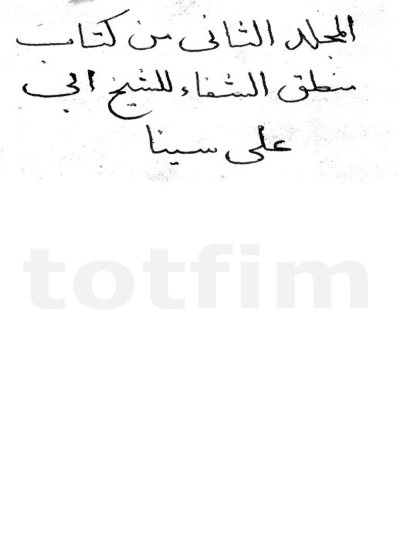 المجلد الثانى من كتاب
منطق الشفاء للشيخ ابي
على سينا
totfim